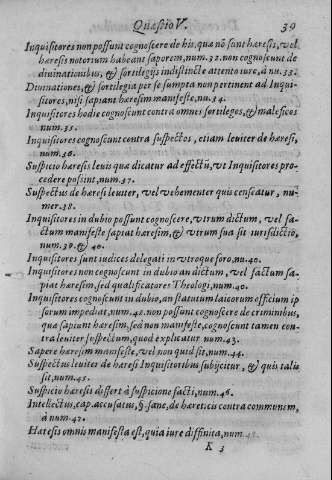 Quæstio V. 39
Inquisitores non possunt cognoscere de his, quæ nõ sunt hæresis, vel
hæresis notorium habeant saporem, num. 32. non cognoscunt de
diuinationibus, & sortilegijs indistincte attento iure, à nu. 33.
Diuinationes, & sortilegia per se sumpta non pertinent ad Inqui-
sitores, nisi sapiant hæresim manifeste, nu. 34.
Inquisitores hodie cognoscunt contra omnes sortileges, & maleficos
num. 35.
Inquisitores cognoscunt contra suspectos, etiam leuiter de hæresi,
num. 36.
Suspicio hæresis leuis quæ dicatur ad effectũ, vt Inquisitores pro-
cedere possint, num. 37.
Suspectus de hæresi leuiter, vel vehementer quis censeatur, nu-
mer. 38.
Inquisitores in dubio possunt cognoscere, vtrum dictum, vel fa-
ctum manifeste sapiat hæresim, & vtrum sua sit iurisdictio,
num. 39. & 40.
Inquisitores sunt iudices delegati in vtroque foro, nu. 40.
Inquisitores non cognoscunt in dubio an dictum, vel factum sa-
piat hæresim, sed qualificatores Theologi, num. 40.
Inquisitores cognoscunt in dubio, an statutum laicorum officium ip
sorum impediat, num. 42. non possunt cognoscere de criminibus,
quæ sapiunt hæresim, sed non manifeste, cognoscunt tamen con-
tra leuiter suspectum, quod explicatur num. 43.
Sapere hæresim manifeste, vel non quid sit, num. 44.
Suspectus leuiter de hæresi Inquisitoribus subijcitur, & quis talis
sit, num. 45.
Suspicio hæresis differt à suspicione facti, num. 46.
Intellectus, cap. accusatus, §. sane, de hæreticis contra communem,
à num. 47.
Hæresis omnis manifesta est, quia iure diffinita, num. 48.
K 3